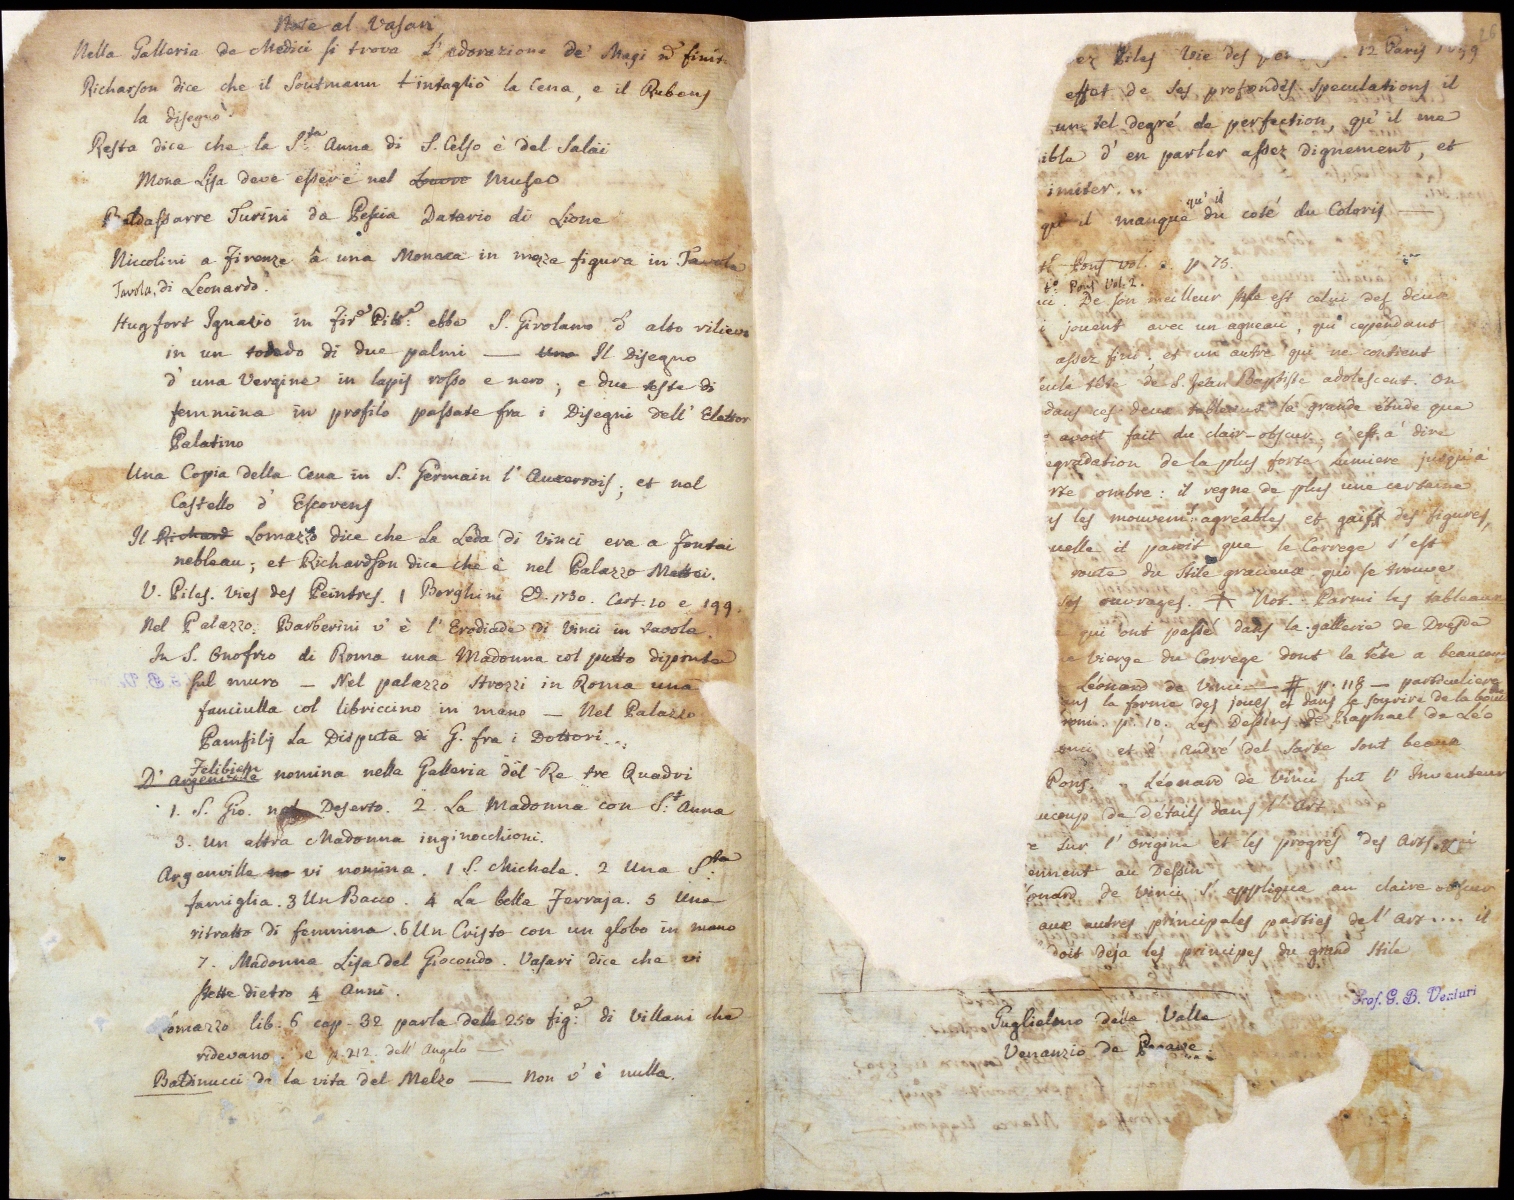 Note al Vasari
Nella Galleria de Medici si trova l'adorazione de' Magi nō finit
Richarson dice che il Soutmann intagliò la Cena, e il Rubens
la disegnò.
Resta dice che la S.ta Anna di S. Celso è del Salai
Mona Lisa deve essere nel Museo
Baldassarre Turini da Pescia Datario di Lione
Niccolini a Firenze â una Monaca in mezza figura in Tavola
Tavola, di Leonardo.
Hugfort Ignazio in Fir.e Pitt.e ebbe S. Girolamo d' alto rilievo
in un todo di due palmi — Il Disegno
d' una Vergine in lapis rosso e nero; e due teste di
femmina in profilo passate fra i Disegni dell' Elettor
Palatino
Una Coppia della Cena in S. Germain l' Auxerrois; et nel
Castello d' Escovens
Il Richard Lomazzo dice che la Leda di Vinci era a Fontai
nebleau; et Richardson dice che è nel Palazzo Mattei.
V. Piles. Vies des Peintres. | Borghini Ed. 1730. Cart. 10 e 199.
Nel Palazzo Barberini v' è l' Erodiade di Vinci in tavola.
In S. Onofrio di Roma una Madonna col putto dipinta
sul muro — Nel palazzo Strozzi in Roma una
fanciulla col libriccino in mano — Nel Palazzo
Pamfilj La Disputa di G. fra i Dottori..
Felibien
D' Argenville nomina nella Galleria del Re tre Quadri
1. S. Gio. nel Deserto. 2. La Madonna con S.t Anna
3. Un altra Madonna inginocchioni.
Argenville vi nomina. 1 S. Michele. 2 Una S.ta
famiglia. 3 Un Bacco. 4 La bella Ferraja. 5 Una
ritratto di femmina. 6 Un Cristo con un globo in mano
7. Madonna Lisa del Giocondo. Vasari dice che vi
stette dietro 4 Anni.
Lomazzo lib. 6 cap. 32 parla delle 250 fig.e di Villani che
ridevano. e p. 212. dell' Angelo —
Baldinucci di la vita del Melzo — Non v' è nulla.
ez Piles Vie des 12 Paris
effet de ses profondes speculations il
un tel degré de perfection, qu' il me
ible d' en parler assez dignement, et
imiter...
qu' il
qu' il manque du coté du Coloris —
Pons vol. 2. p 75.
Pons Vol. 2.
ci. De son meilleur style est celui des deux
i jouent avec un agneau, qui cependant
assez fini. et un autre qui ne contient
eule tête de S. Jean Baptiste adolescent. On
dans ces deux tableaux la grande étude que
avoit fait du clair-obscur, c'est à dire
egradation de la plus forte lumiere jusqu'à
rte ombre: il regne de plus une certaine
s les mouvem.s agréables et gais des figures,
uelle il paroit que le Correge s'est
route du stile gracieux qui se trouve
ses ouvrages. Not. Parmi les tableaux
qui ont passé dans la gallerie de Dresde
e vierge du Correge dont la tête a beaucoup
Léonard de Vinci — # p. 118 — particuliere
ans la forme des joues et dans le sourire de la bouche
p. 10. Les Dessins de Raphael de Léo
inci et d' André del Sarte sont beaux
Pons. Léonard de Vinci fut l' Inventeur
aucoup de détails dans l' Art.
e sur l' origine et les progrés des Arts qui
iennent au Dessin
éonard de Vinci s' appliqua au claire obscur
aux autres principales parties de l' Art.... il
doit déja les principes du grand Stile
Prof. G. B. Venturi
Guglielmo della Valle
Venanzio de Pagave